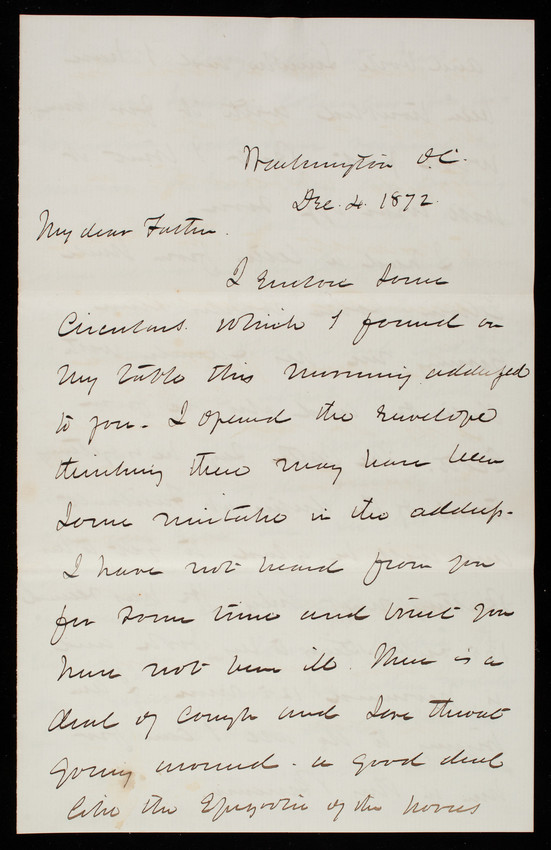 Washington D.C.
Dec. 4. 1872.
My dear Father.
I enclose some
Circulars which I found on
my table this morning addressed
to you. I opened the envelope
thinking there may have been
some mistake in the address.
I have not heard from you
for some time and trust you
have not been ill. There is a
deal of cough and sore throat
going around. a good deal
like the Epizootic of the horses